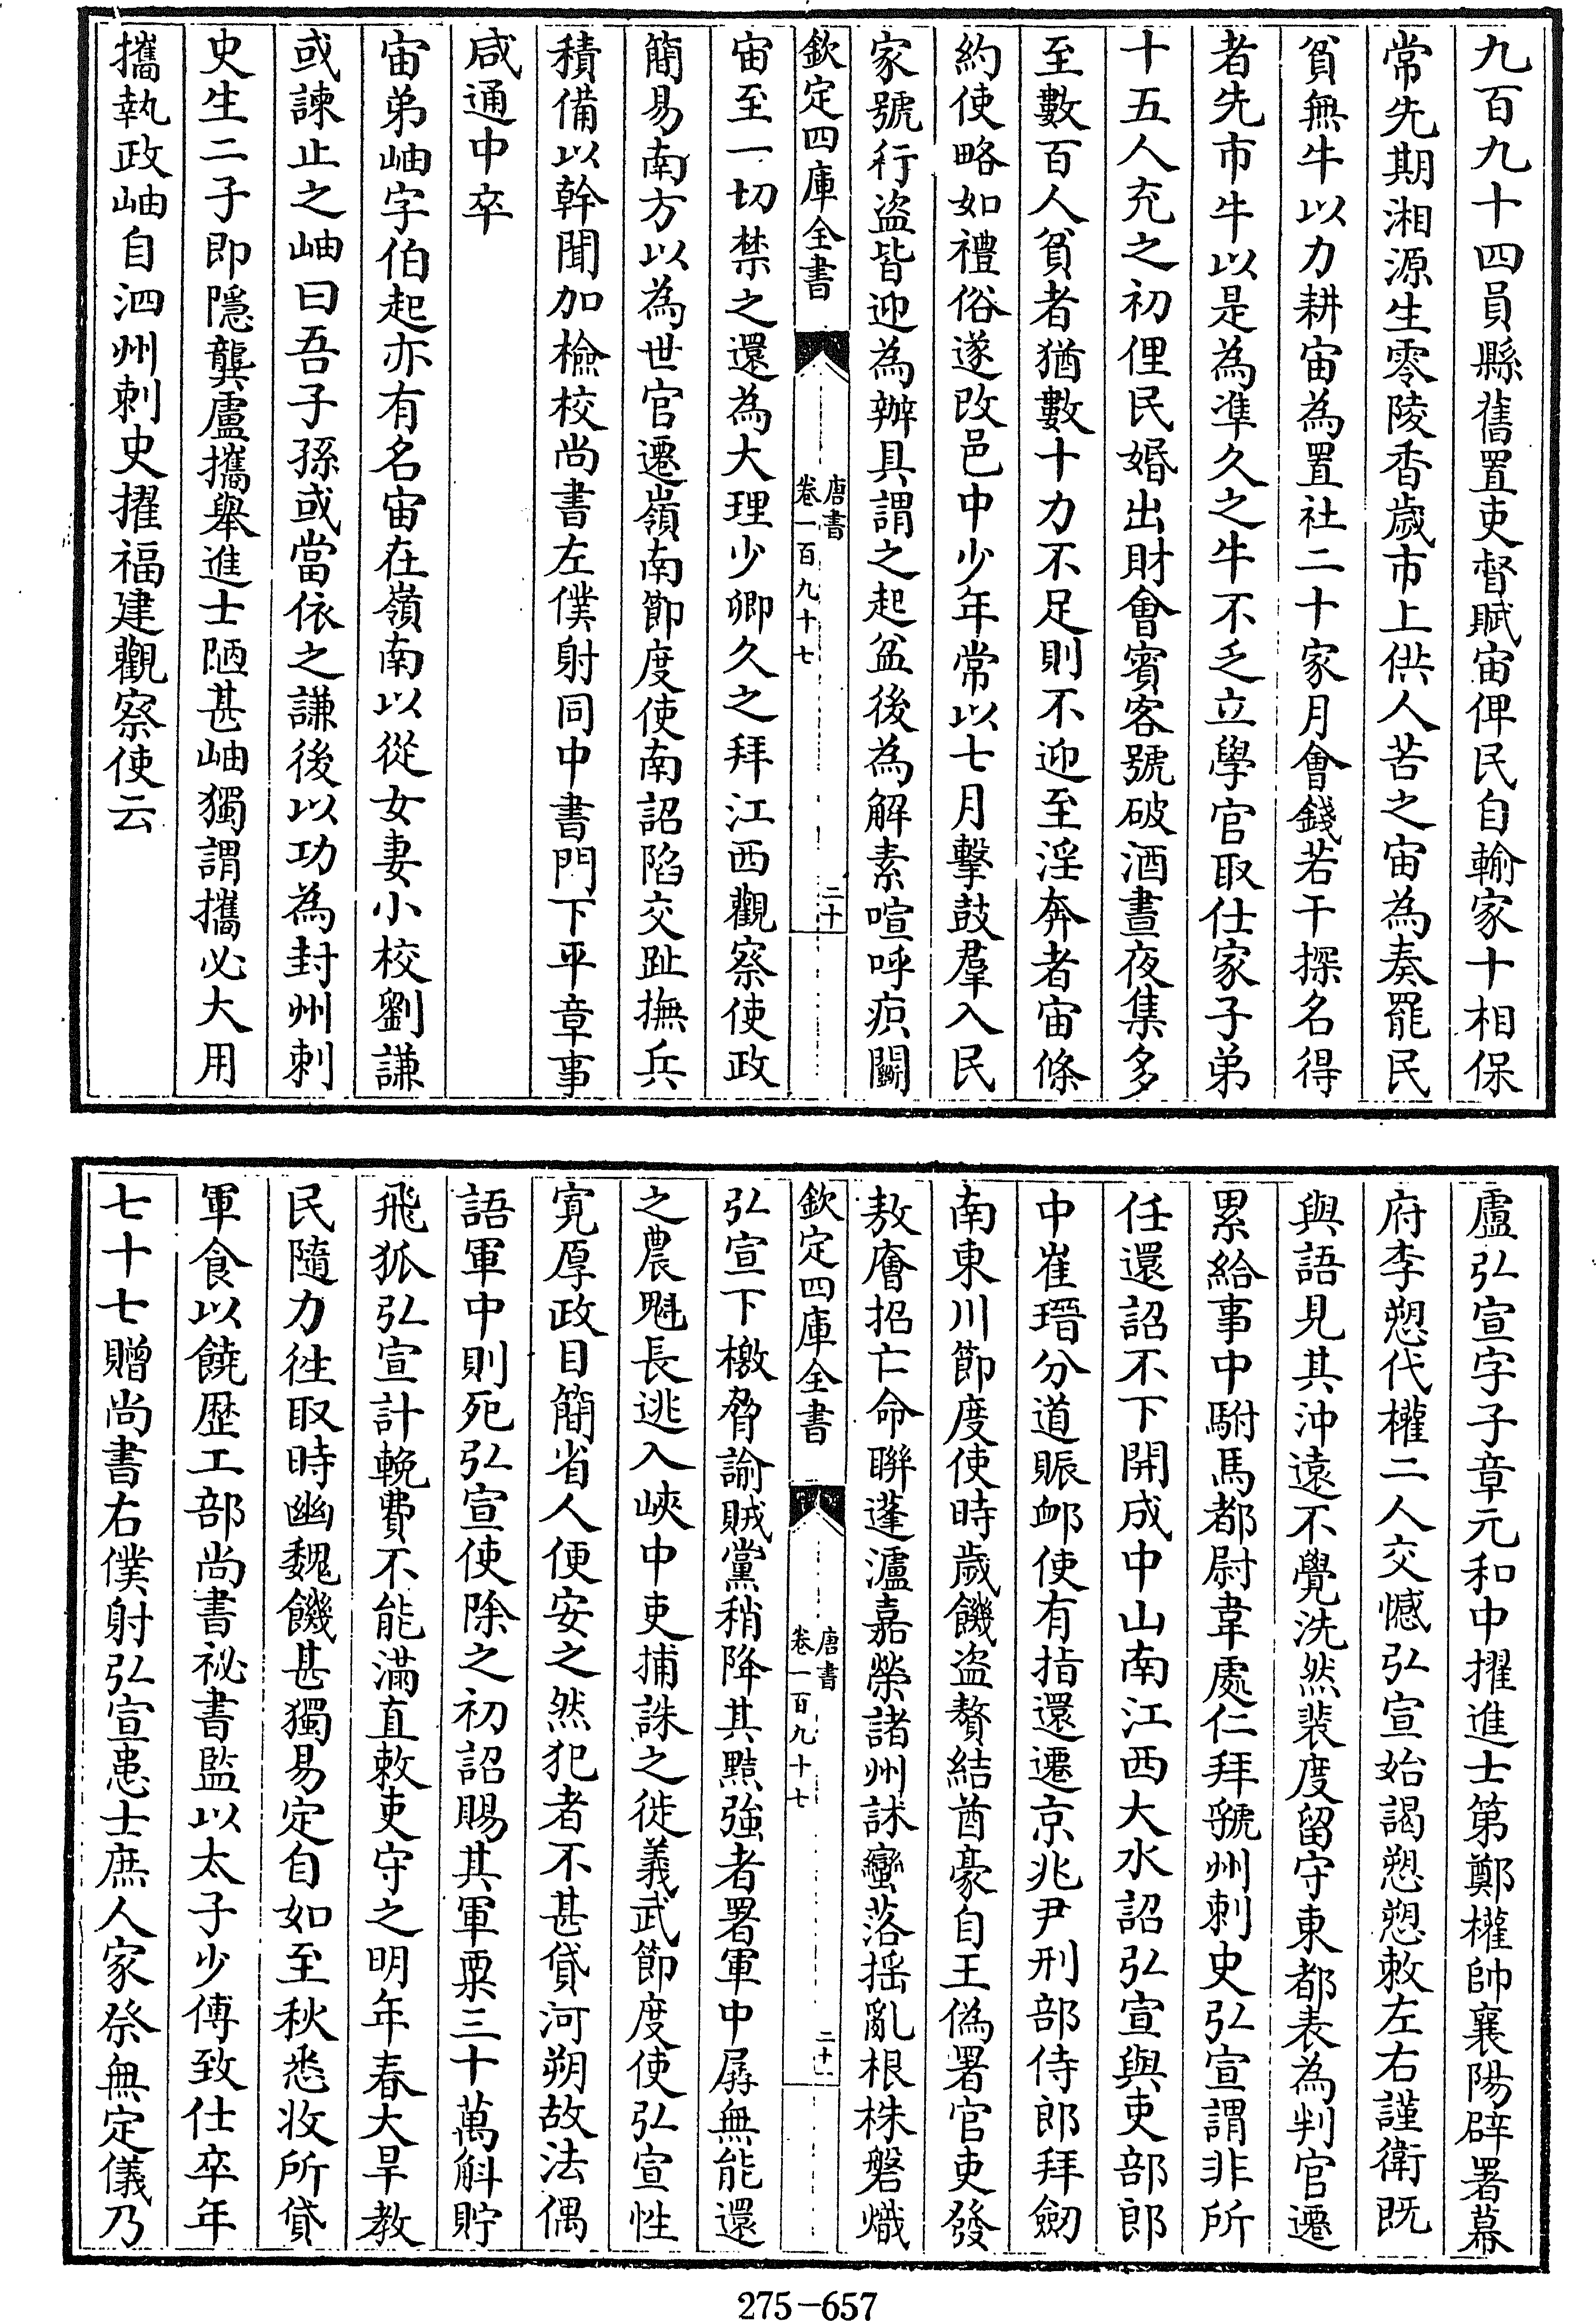 九百九十四員縣舊置吏督賦宙俾民自輸家十相保
常先期湘源生零陵香歲市上供人苦之宙為奏罷民
貧無牛以力耕宙為置社二十家月會錢若干探名得
者先市牛以是為準久之牛不乏立學官取仕家子弟
十五人充之初俚民婚出財會賓客號破酒晝夜集多
至數百人貧者猶數十力不足則不迎至淫奔者宙條
約使略如禮俗遂改邑中少年常以七月擊鼓羣入民
家號行盜皆迎為辦具謂之起盆後為解素喧呼疻鬭
欽定四庫全書
唐書
卷一百九十七
二十
宙至一切禁之還為大理少卿久之拜江西觀察使政
簡易南方以為世官遷嶺南節度使南詔陷交趾撫兵
積備以幹聞加檢校尚書左僕射同中書門下平章事
咸通中卒
宙弟岫字伯起亦有名宙在嶺南以從女妻小校劉謙
或諫止之岫曰吾子孫或當依之謙後以功為封州刺
史生二子即隱龑盧攜舉進士陋甚岫獨謂攜必大用
攜執政岫自泗州刺史擢福建觀察使云
盧弘宣字子章元和中擢進士第鄭權帥襄陽辟署幕
府李愬代權二人交憾弘宣始謁愬愬敕左右謹衛既
與語見其沖遠不覺洗然裴度留守東都表為判官遷
累給事中駙馬都尉韋處仁拜虢州刺史弘宣謂非所
任還詔不下開成中山南江西大水詔弘宣與吏部郎
中崔瑨分道賑卹使有指還遷京兆尹刑部侍郎拜劒
南東川節度使時歲饑盜贅結酋豪自王偽署官吏發
敖廥招亡命聯蓬瀘嘉榮諸州訹蠻落搖亂根株磐熾
欽定四庫全書
唐書
卷一百九十七
二十一
弘宣下檄脅諭賊黨稍降其黠強者署軍中孱無能還
之農魁長逃入峽中吏捕誅之徙義武節度使弘宣性
寬厚政目簡省人便安之然犯者不甚貸河朔故法偶
語軍中則死弘宣使除之初詔賜其軍粟三十萬斛貯
飛狐弘宣計輓費不能滿直敕吏守之明年春大旱教
民隨力往取時幽魏饑甚獨易定自如至秋悉收所貸
軍食以饒歷工部尚書祕書監以太子少傅致仕卒年
七十七贈尚書右僕射弘宣患士庶人家祭無定儀乃
275-657